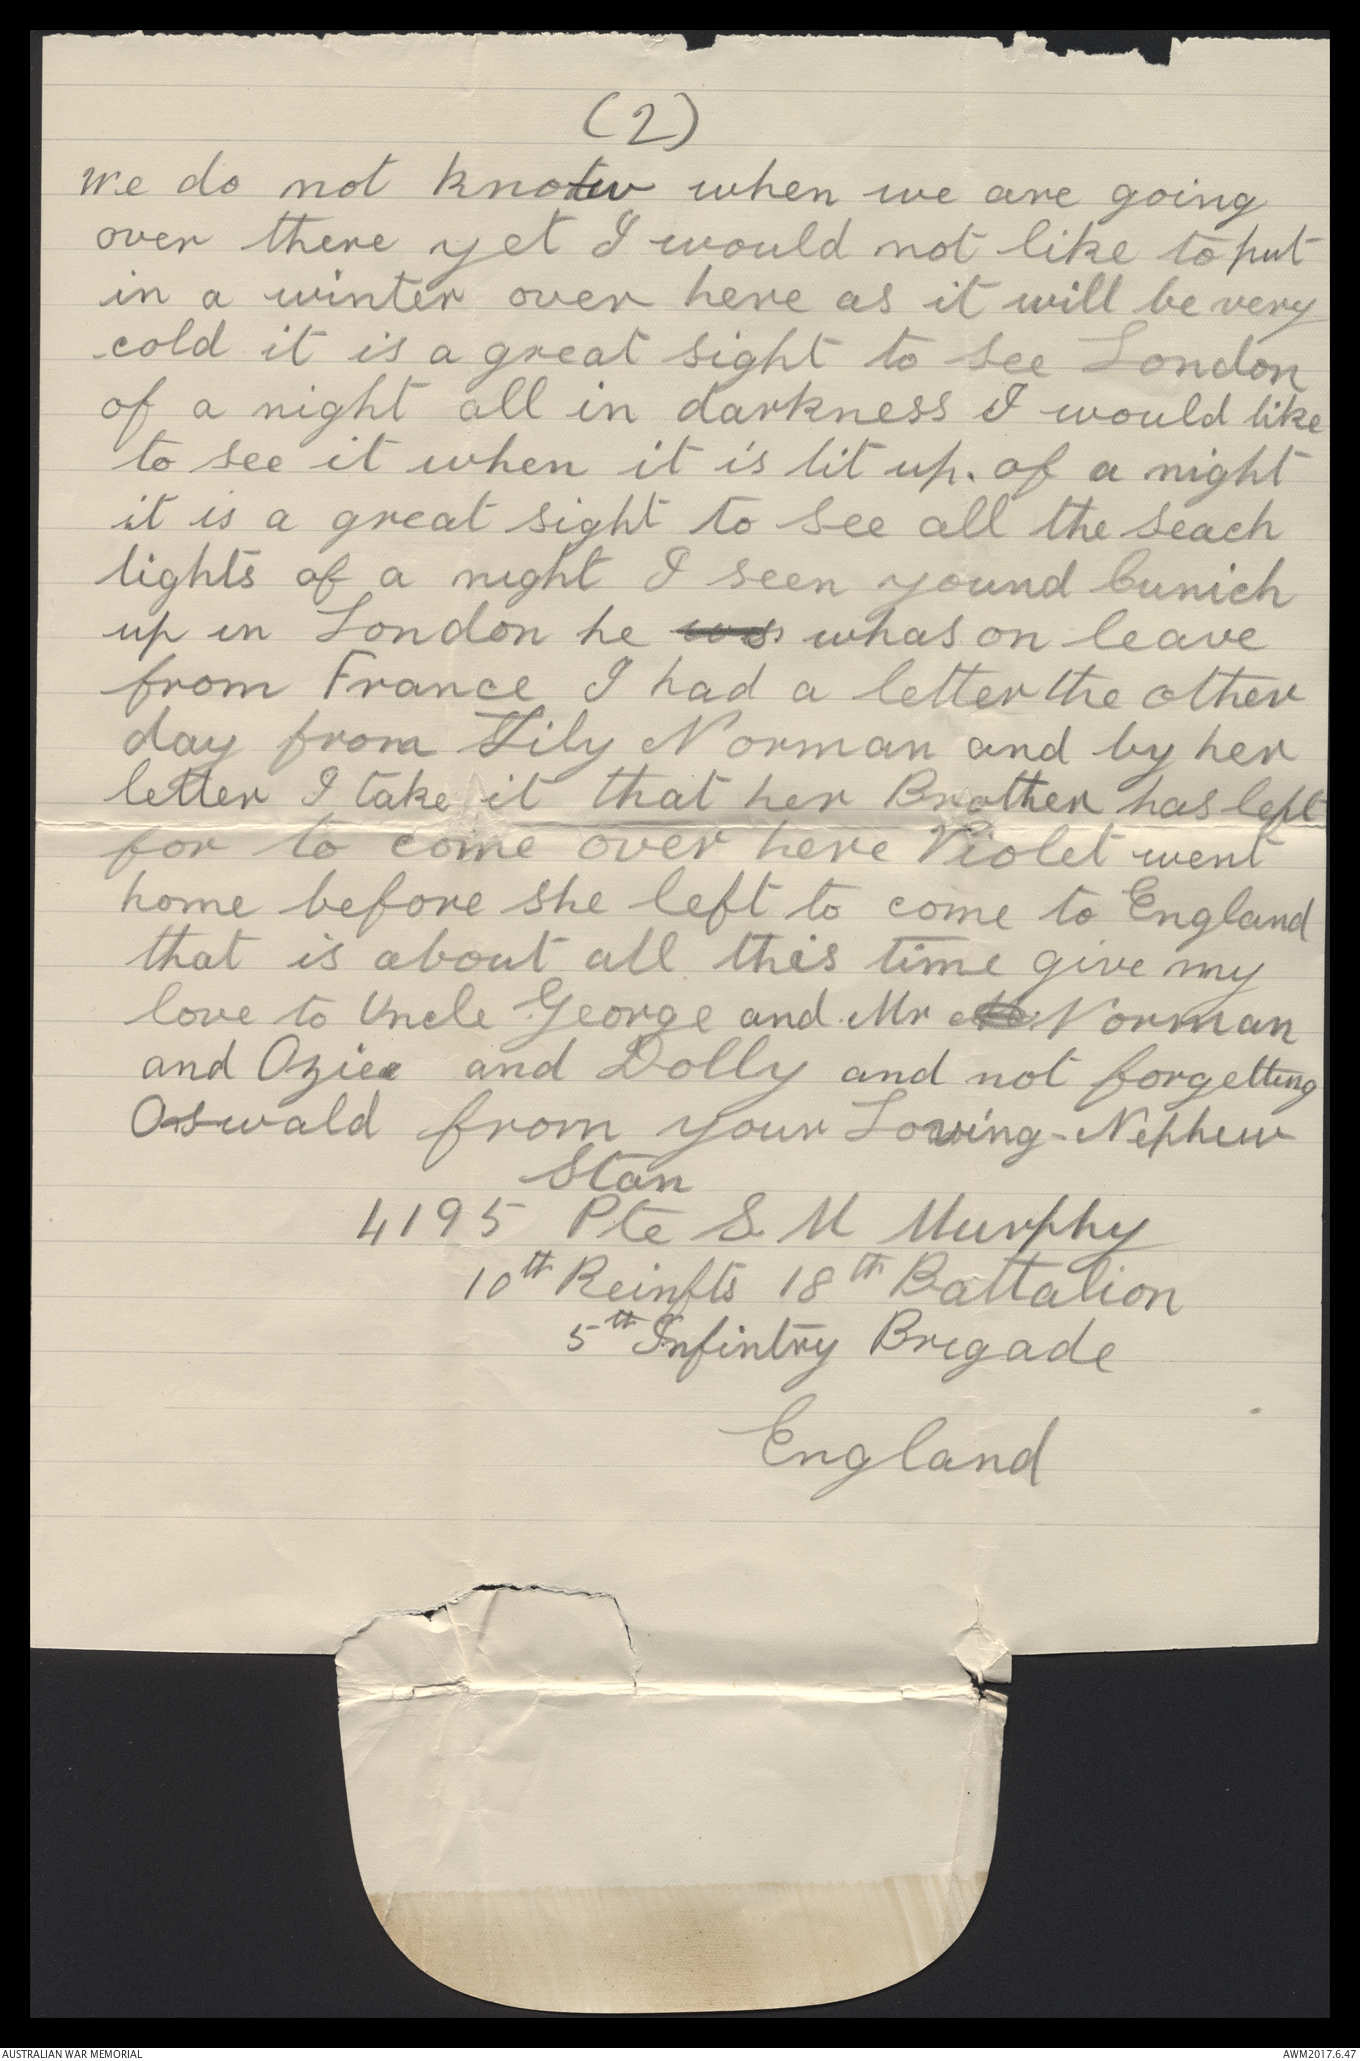 (2)
we do not know when we are going
over there yet I would not like to put
in a winter over here as it will be very
cold it is a great sight to see London
of a night all in darkness I would like
to see it when it is lit up. of a night
it is a great sight to see all the seach
lights of a night I seen yound Cunich
up in London he was whas on leave
from France I had a letter the other
day from Lily Norman and by her
letter I take it that her Brother has left
for to come over here Violet went
home before she left to come to England
that is about all this time give my
love to Uncle George and Mr Norman
and Ozie and Dolly and not forgetting
Oswald from your Loving-Nephew
Stan
4195 Pte S. M Murphy
10th Reinfts 18th Battalion
5th Infintry Brigade
England
AUSTRALIAN WAR MEMORIAL
AWM2017.6.47